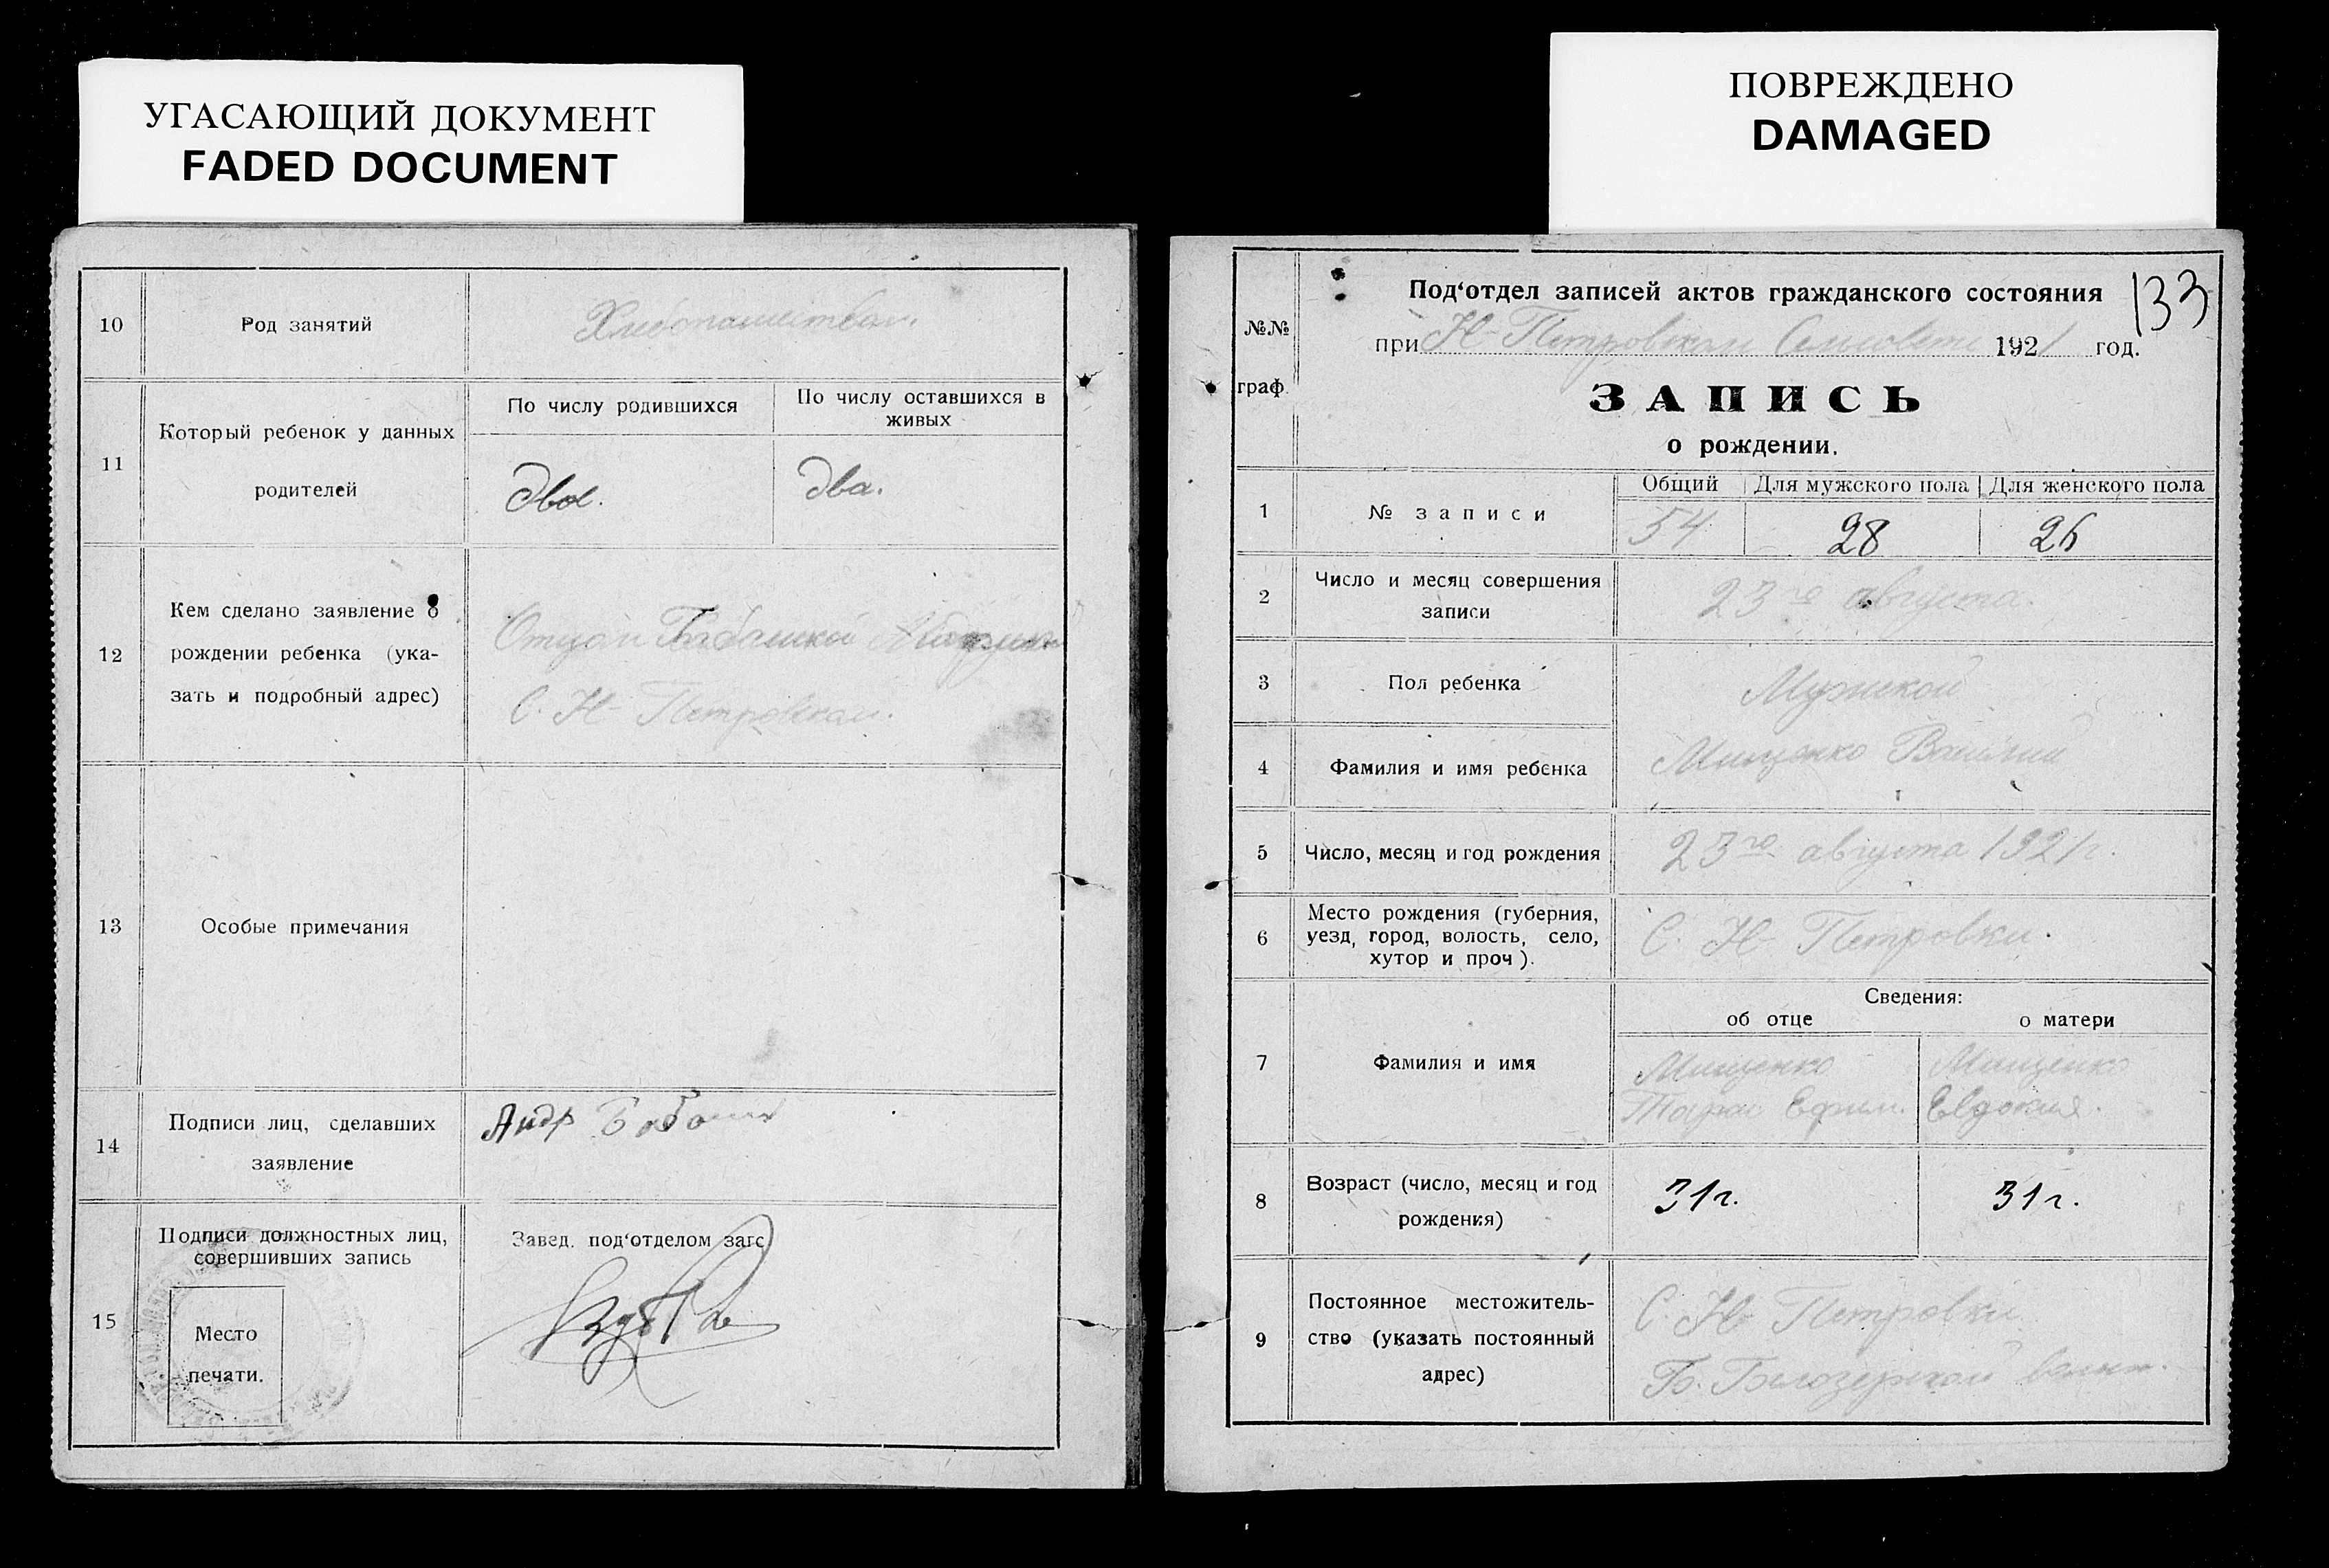 УГАСАЮЩИЙ ДОКУМЕНТ
FADED DOCUMENT
10
Род занятий
Хлебопашеством.
11
Который ребенок у данных
родителей
По числу родившихся
По числу оставшихся в
живых
два.
два.
12
Кем сделано заявление о
рождении ребенка (ука-
зать и подробный адрес)
С. Н-Петровком.
13
Особые примечания
14
Подписи лиц, сделавших
заявление
Андр
15
Подписи должностных лиц,
совершивших запись
Место
печати.
Завед. под‘отделом загс
ПОВРЕЖДЕНО
DAMAGED
133
№№
граф.
Под‘отдел записей актов гражданского состояния
при Н-Петровском Сельсовете 1921 год.
ЗАПИСЬ
о рождении.
1
№ записи
Общий
Для мужского пола
Для женского пола
54
28
26
2
Число и месяц совершения
записи
23го августа.
3
Пол ребенка
Мужской
4
Фамилия и имя ребенка
Мищенко Василий
5
Число, месяц и год рождения
23го августа 1921г.
6
Место рождения (губерния,
уезд, город, волость, село,
хутор и проч).
С. Н-Петровки.
Сведения:
об отце
о матери
7
Фамилия и имя
Мищенко
Тарас Ефим.
Мищенко
Евдокия.
8
Возраст (число, месяц и год
рождения)
31г.
31г.
9
Постоянное местожитель-
ство (указать постоянный
адрес)
С. Н-Петровки
Б. Белозерской волост.